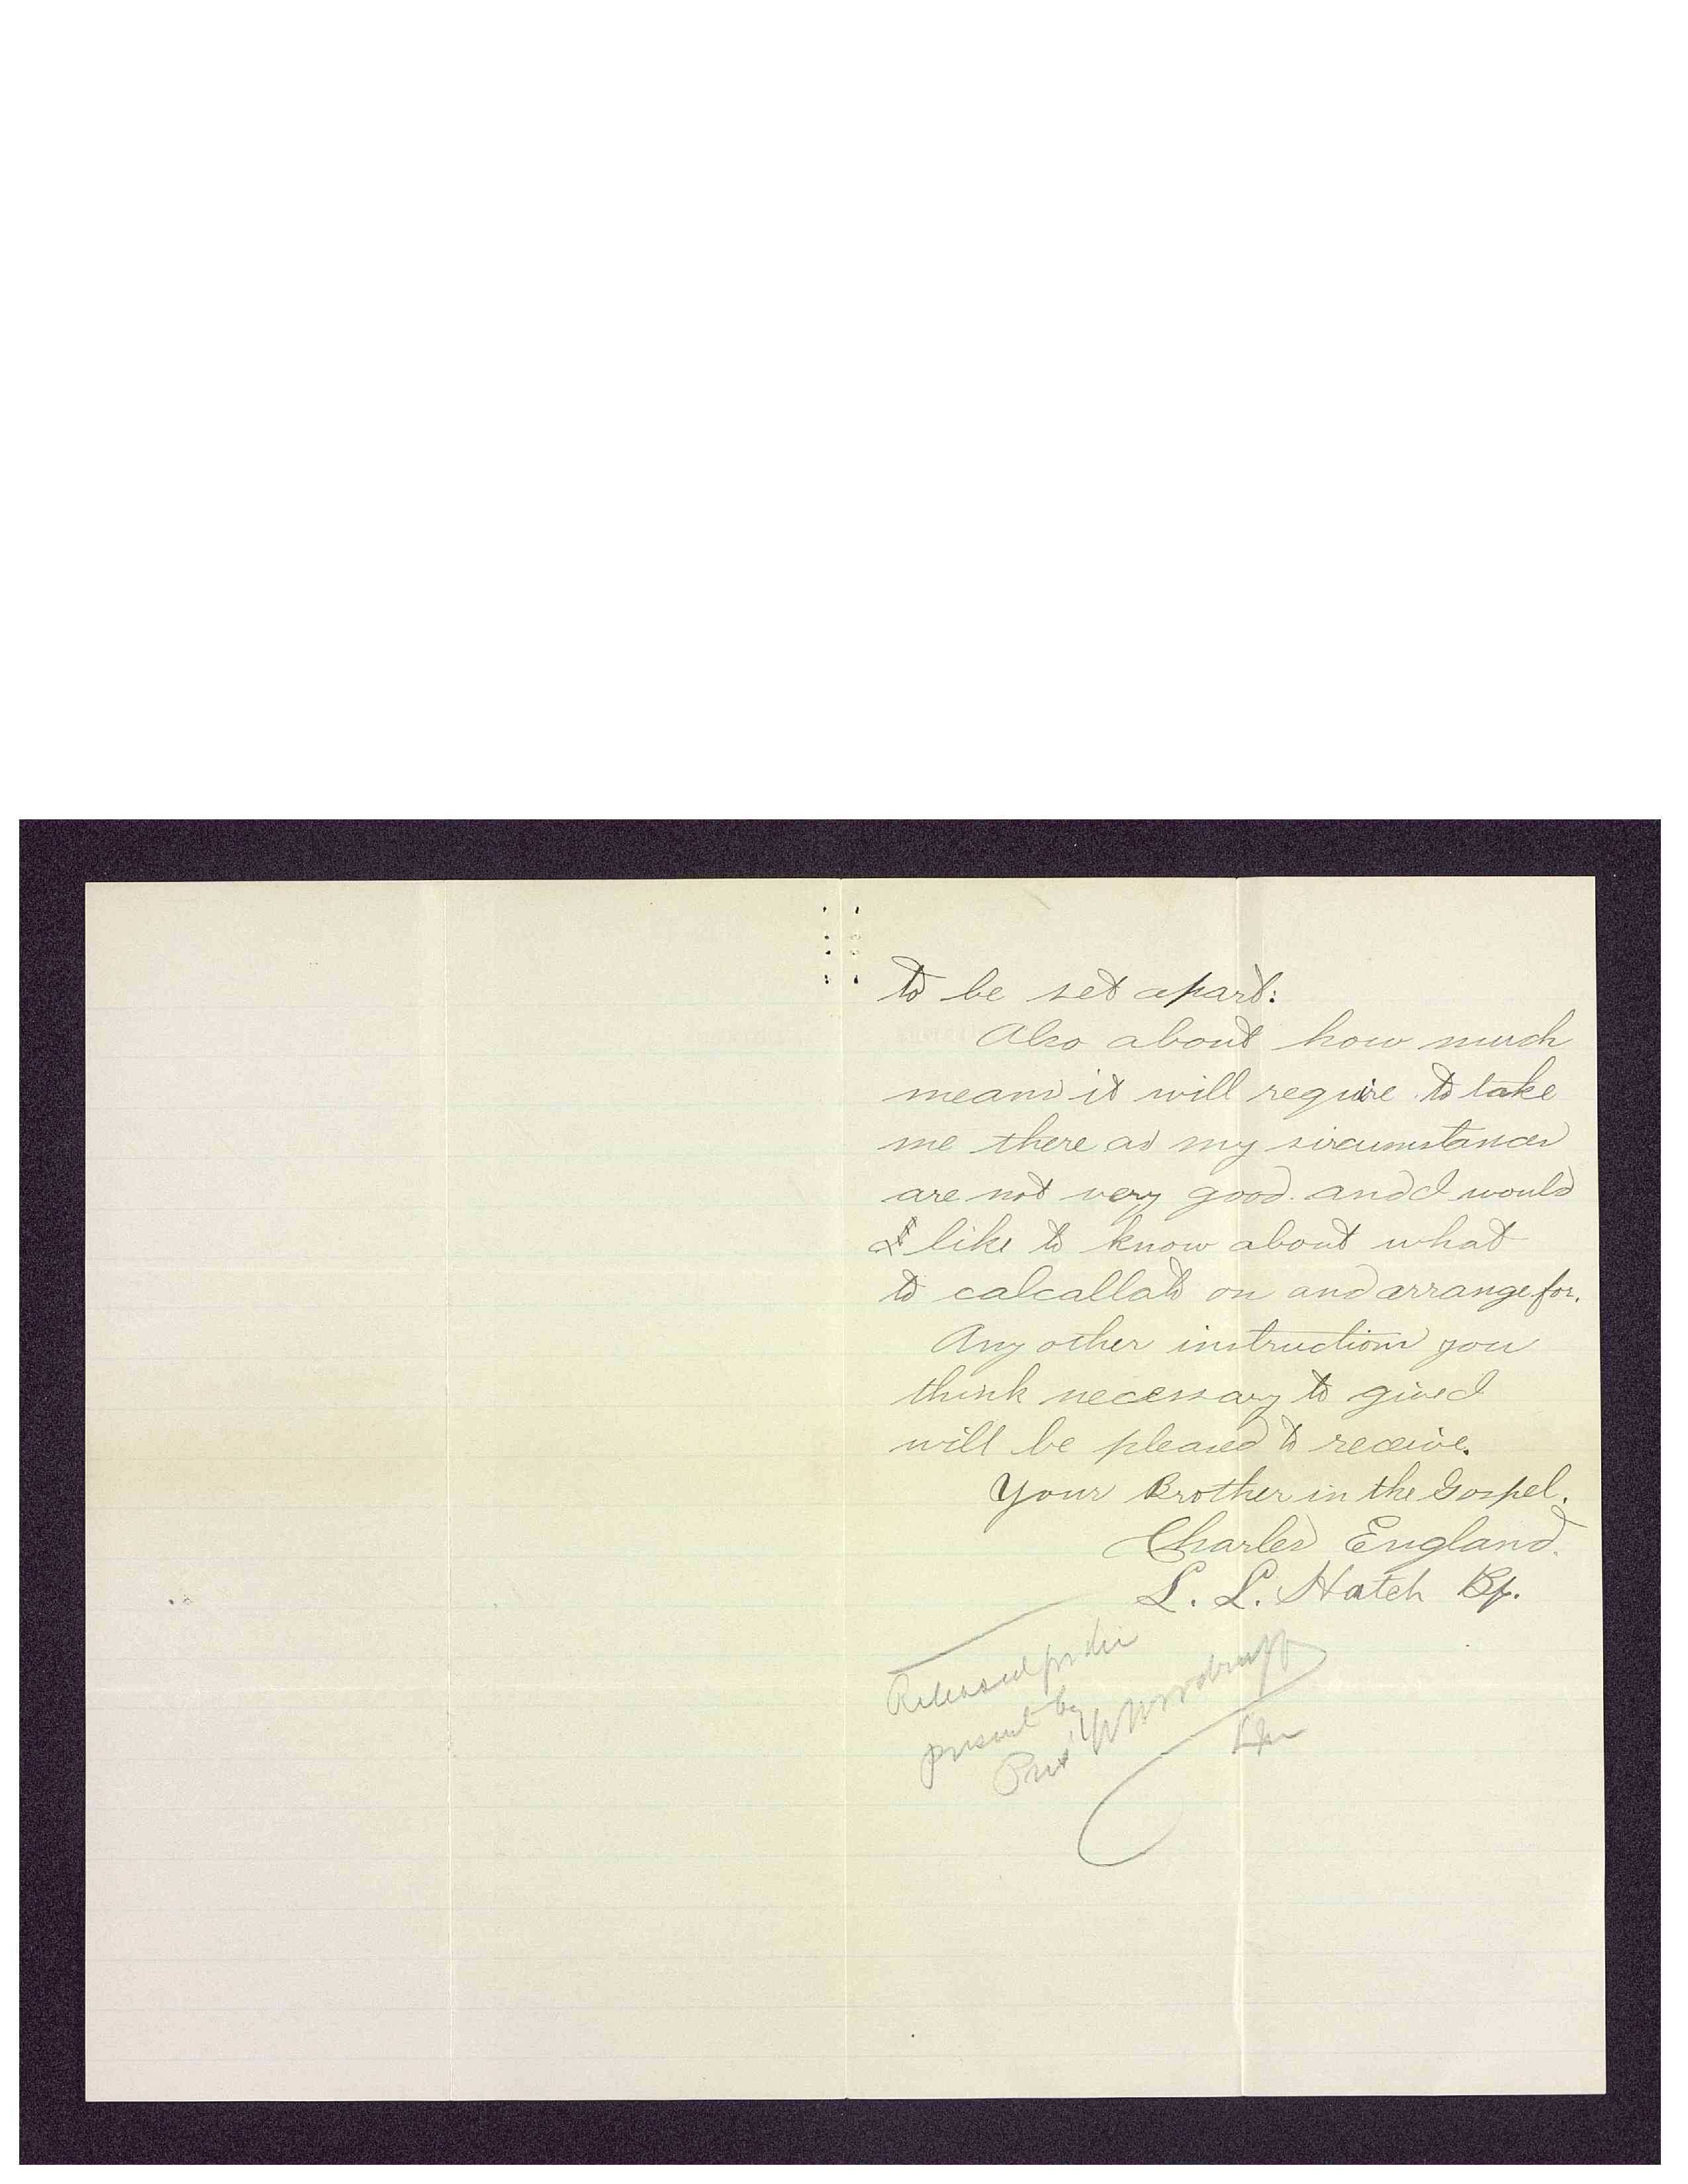 to be set apart:
Also about how much
means it will require to take
me there as my sircumstances
are not very good. and I would
like to know about what
to calcallate on and arrange for.
Any other instructions you
think necessary to give I
will be pleased to receive.
Your Brother in the Gospel.
Charles England.
L. L. Hatch Bp.
Released for the
present by
Prest W Woodruff